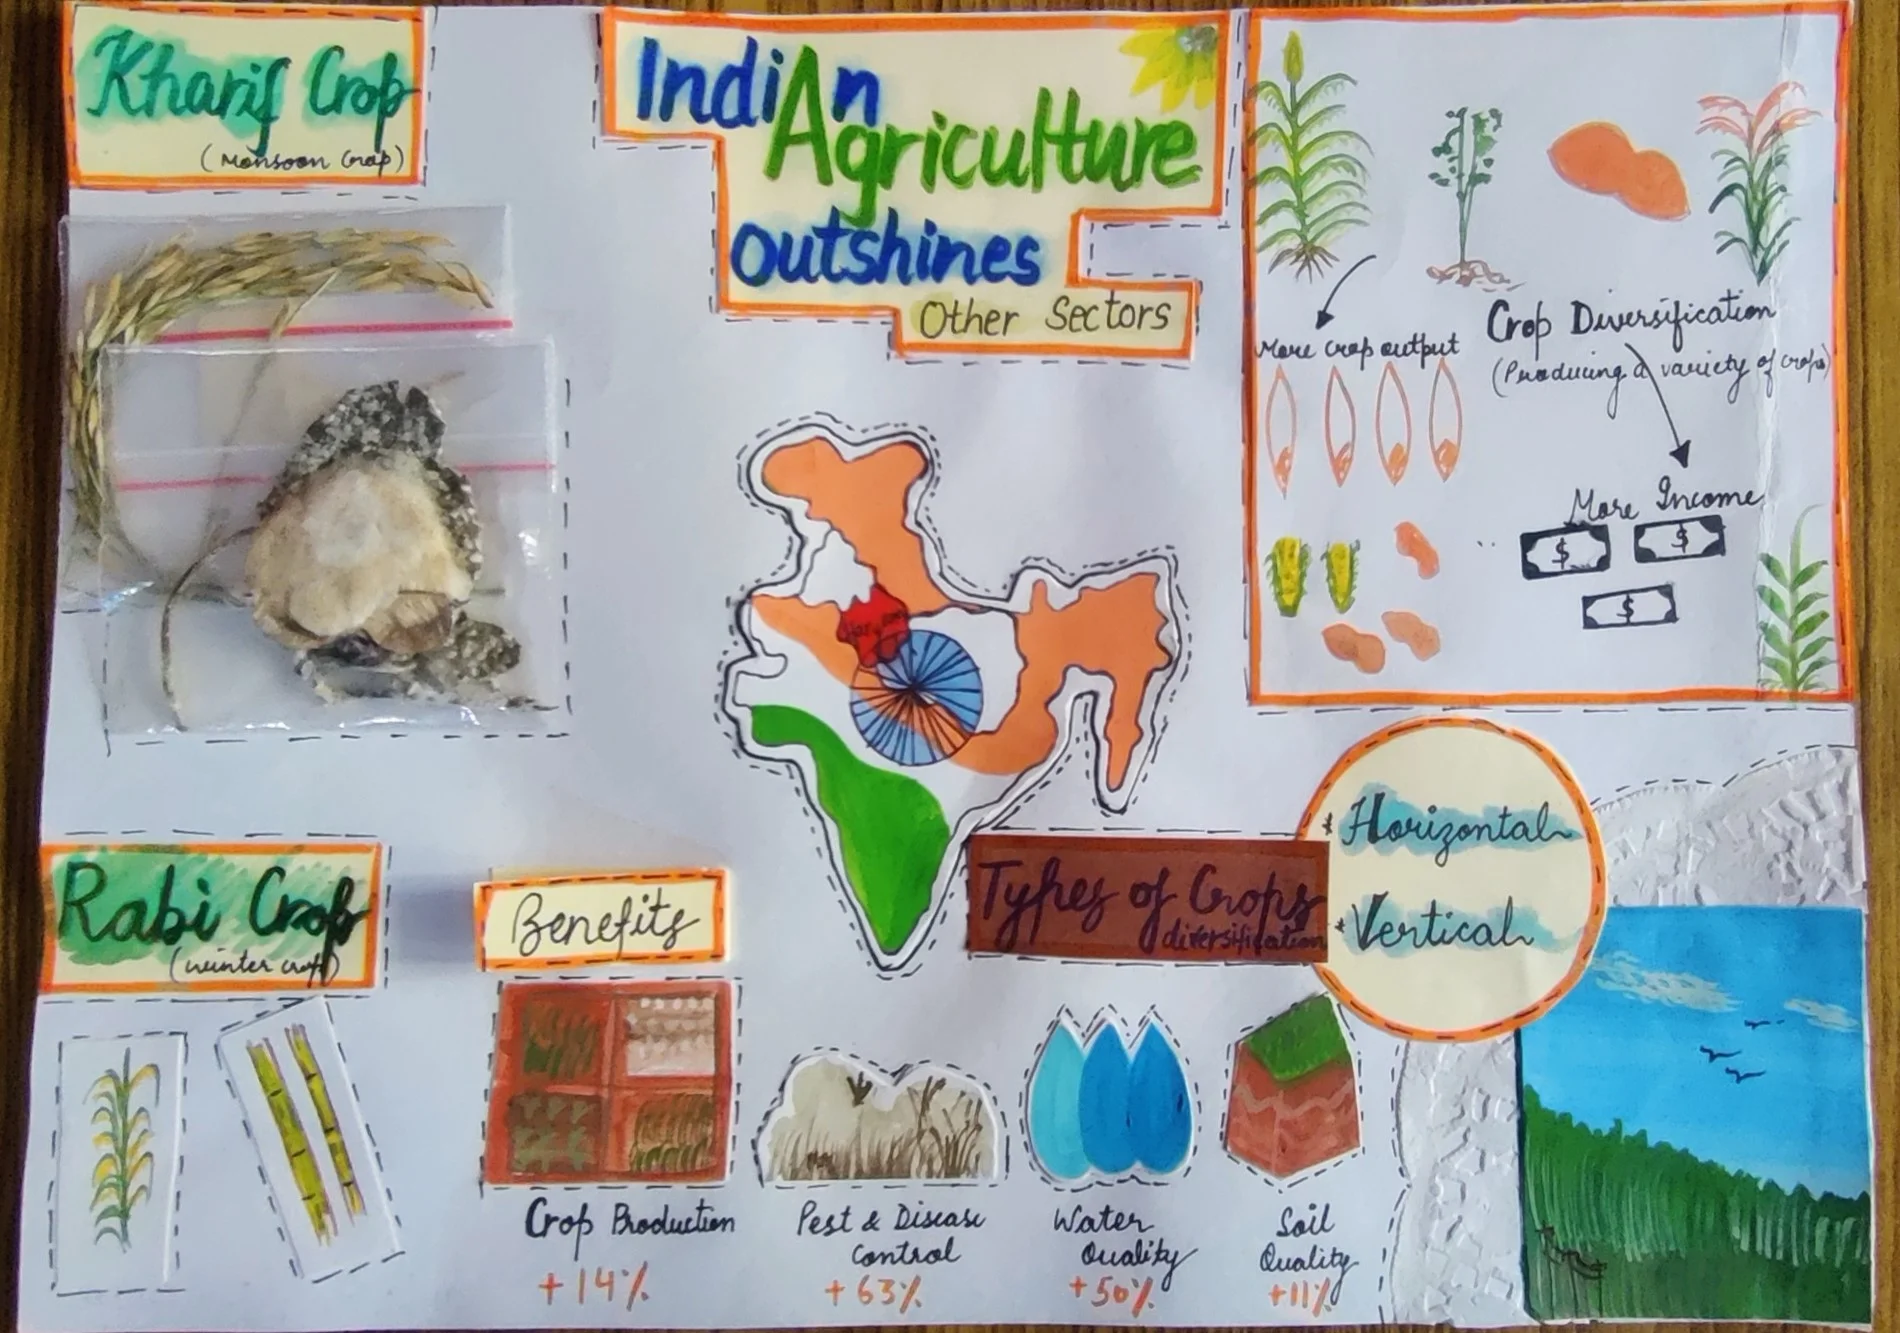 Kharif Crop
(Monsoon Crop)
IndiAn
Agriculture
outshines
Other Sectors
More crop output
Crop Diversification
(Producing a variety of crops)
More Income
$ $
$
Rabi Crop
(winter crop)
Benefits
Types of Crops
diversification
* Horizontal
* Vertical
Crop Production
+14%
Pest & Disease
Control
+63%
Water
Quality
+50%
Soil
Quality
+11%